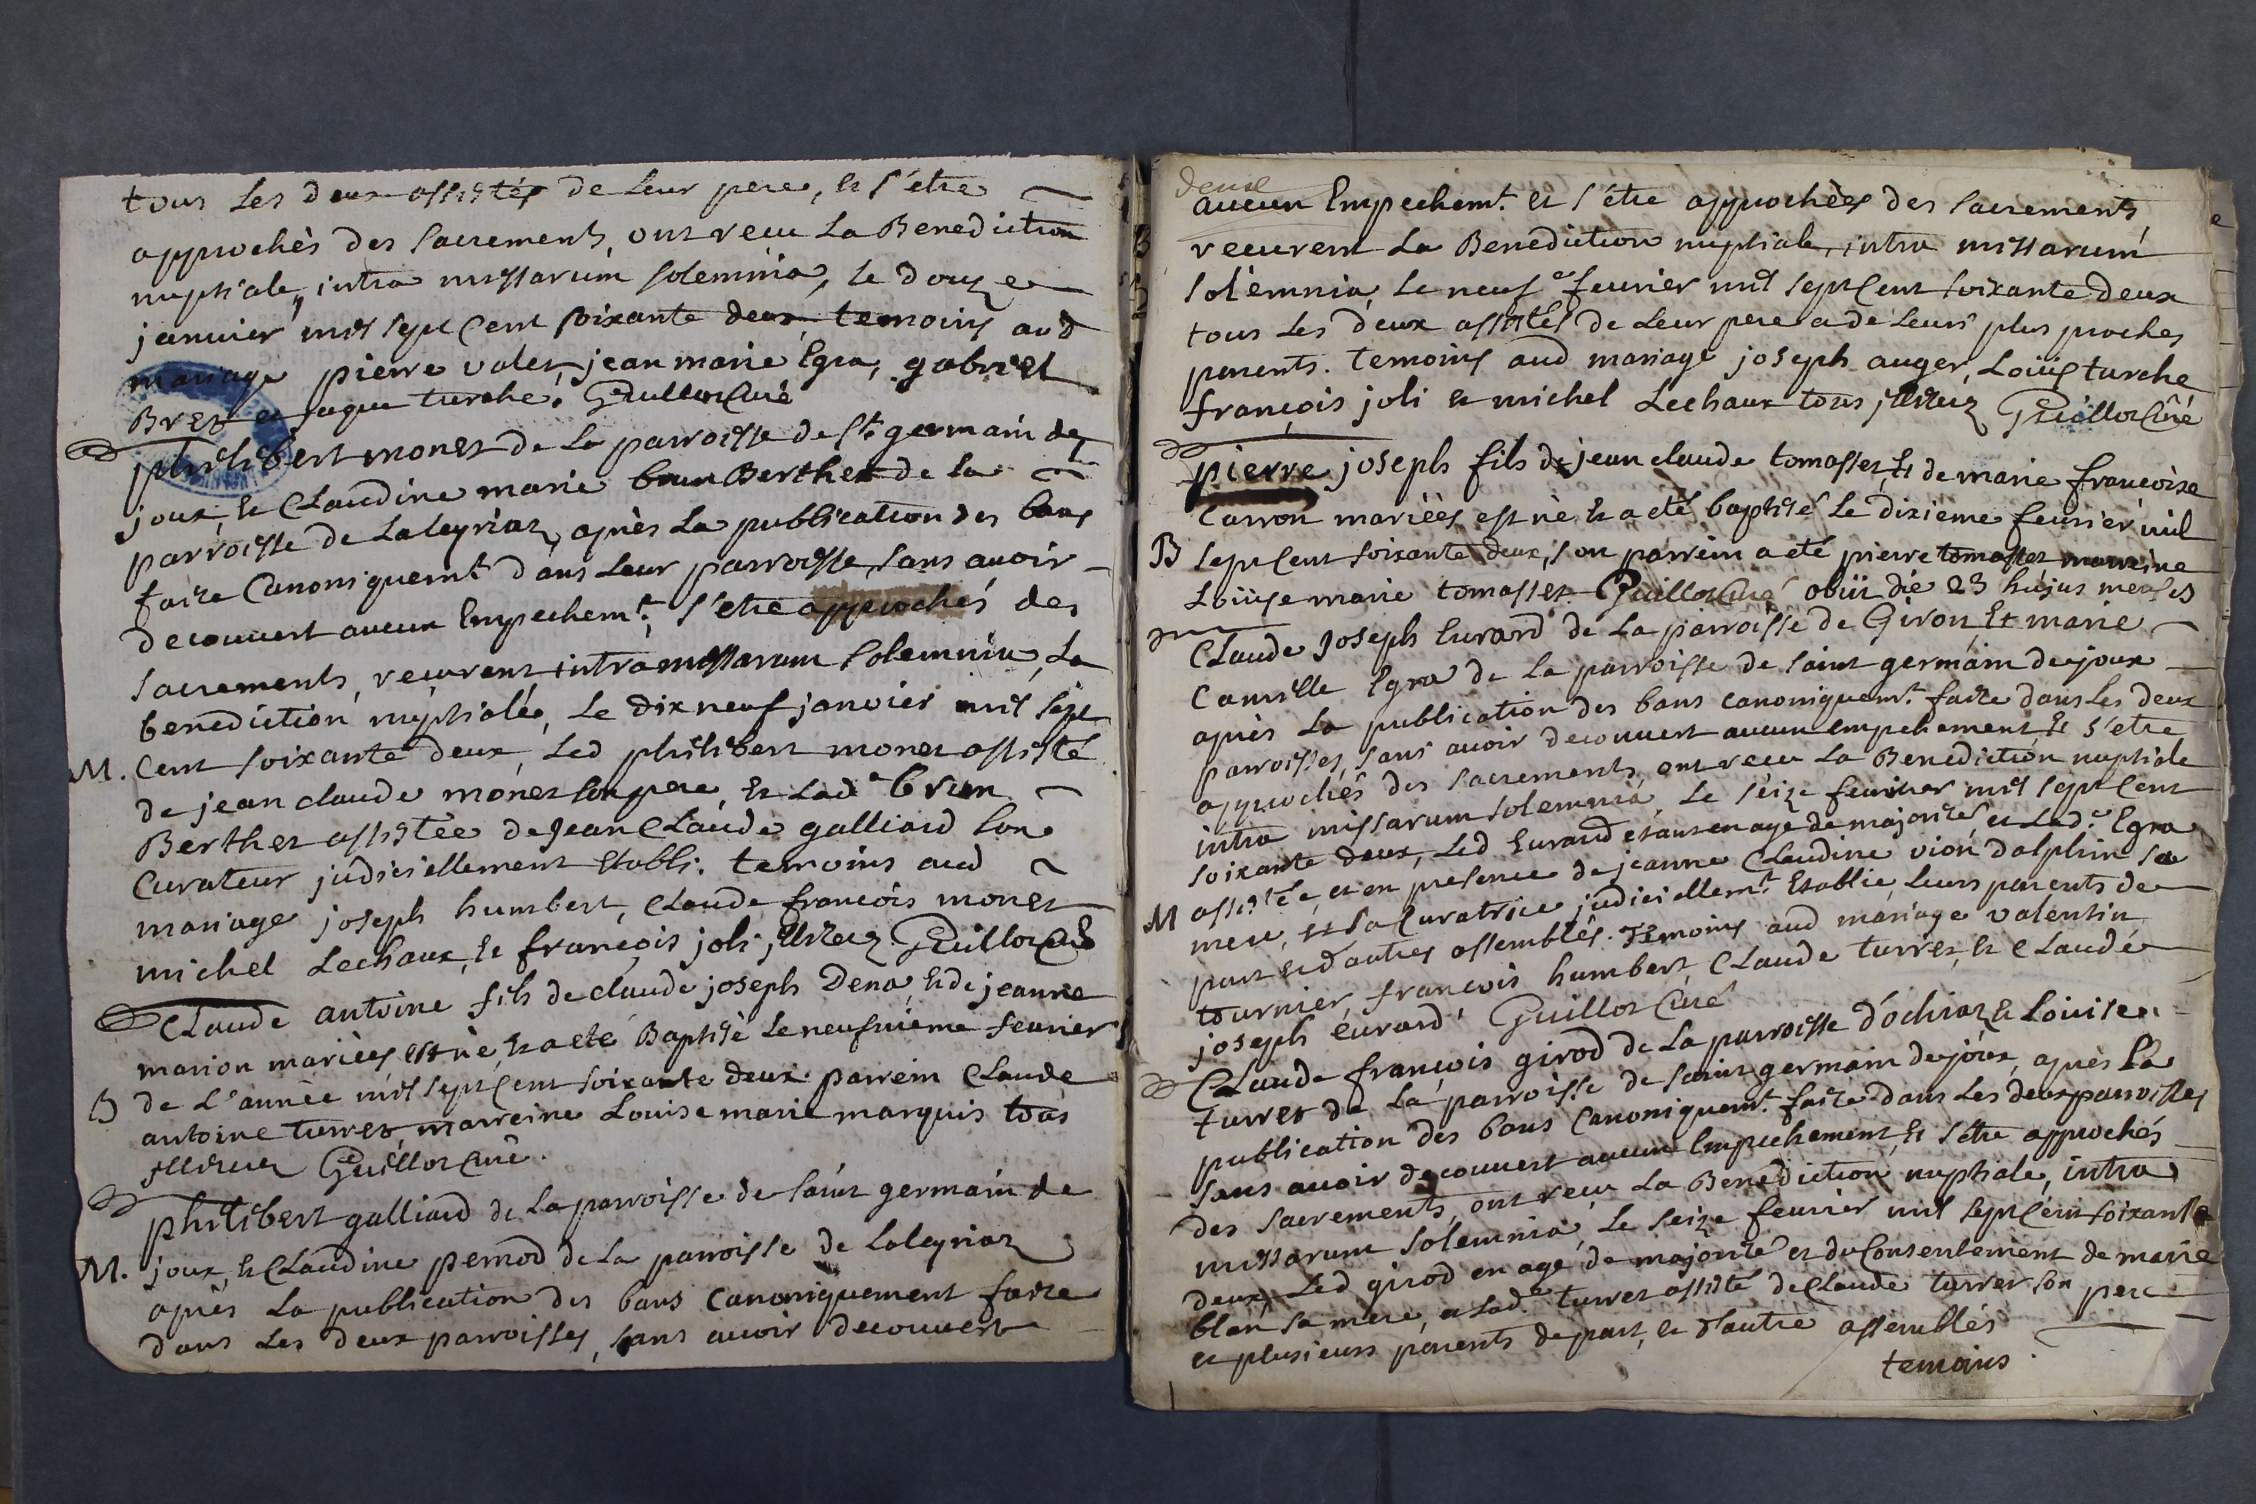 tous les deux assistés de leur pere, et s'être
approchès des sacrements, ont recu la Benediction
nuptiale, intra missarum solemnia, le douze
janvier mil sept cent soixante deux, temoins aud
mariage pierre valet, jean marie Egra, gabriel
Bret et jaque turche. Guillot Curé
philibert monet de la parroisse de st. germain de
joux, et Claudine marie brun Berthet de la
parroisse de Laleyriaz, après la publication des bans
faite Canoniquemt. dans leur parroisse, sans avoir
decouvert aucun Empechemt. s'etre approchés des
sacrements, recurent intra missarum solemnia, la
benediction nuptiale, Le dix neuf janvier mil sept
M. cent soixante deux, Led philibert monet assisté
de jean claude monet son pere, et Lade brun
Berthet assistée de Jean Claude galliard son
Curateur judiciellement Etabli. temoins aud
mariage joseph humbert, Claude françois monet
michel Lechaux, et françois joli, illitez. Guillot Curé
Claude antoine fils de claude joseph Dena, et de jeanne
marion mariées est nè et a eté Baptisè Le neufuieme feurier
B de L'annèe mil sept cent soixante deux. parrein Claude
antoine turret, marreine Louise marie marquis tous
illitez Guillot Curé.
philibert galliard de la parroisse de saint germain de
M. joux, et Claudine pernod de La parroisse de Laleyriaz
après La publication des bans Canoniquement faite
dans Les deux parroisses, sans avoir decouvert
deuxe
aucun Empechemt. et s'être approchès des sacrements,
recurent La Benediction nuptiale, intra missarum
solemnia, Le neuf e feurier mil sept cent soixante deux
tous Les deux assistés de Leur pere a de Leurs plus proches
parents. temoins aud mariage joseph auger, Loüis turche
françois joli et michel Lechaux tous illitez Guillot Curé
pierre joseph fils de jean claude tomasset, Et de marie francoise
Carron mariéés est nè et a eté baptisé Le dixieme feurier mil
B sept cent soixante deux, son parrein a eté pierre tomasset, marreine
Loüise marie tomasset. Guillot Curé obiit die 23 hujus mensis
Claude Joseph Eurard de La parroisse de Giron, Et marie
Camille Egra de la parroisse de saint germain de joux
après La publication des bans canoniquemt. faite dans Les deux
parroisses, sans avoir decouvert aucun empechement Et s'etre
approchés des sacrements, ont recu La Benediction nuptiale
intra missarum solemnia, Le seize feurier mil sept cent
soixante deux, Led Eurard etant en age de majorité, et Lade. Egra
M assistée, et en presence de jeanne Claudine vion dalphin sa
mere, et sa Curatrice judiciellemt. Etablie, Leurs parents de
part et d'autres assemblés. Temoins aud mariage valentin
tournier, françois humbert, Claude turret, et Claude
joseph éurard Guillot Curé
Claude françois girod de La parroisse d'ochiaz, et Louise
turret de La parroisse de saint germain de joux, après la
publication des bans Canoniquemt. faite dans Les deux parroisses
sans avoir decouvert aucun Empechement, Et s'être approchés
des sacrements, ont recu La Benediction nuptiale, intra
missarum solemnia, Le seize feurier mil sept cent soixante
deux, Led girod en age de majorité et du Consentement de marie
blan sa mere, et Lade. turret assisté de Claude turret son pere
et plusieurs parents de part, et d'autre assemblés
temoins